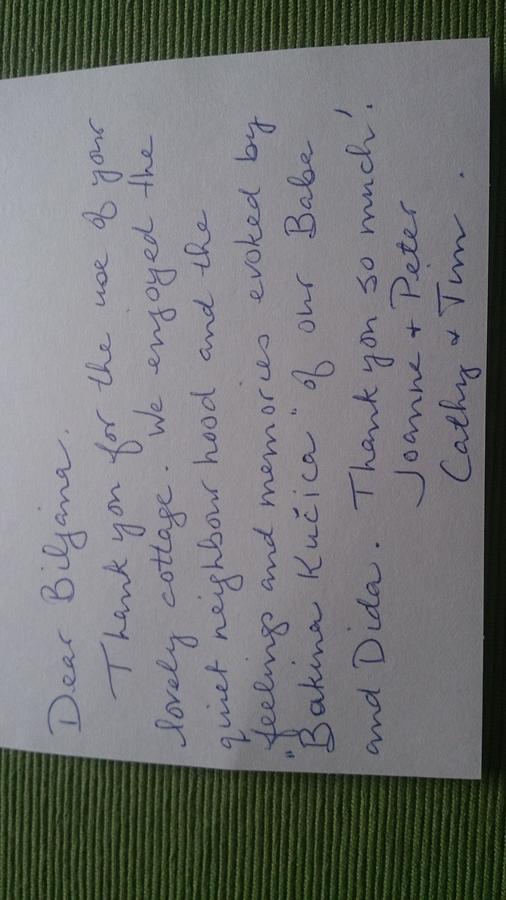 Dear Biljana.
Thank you for the use of your
lovely cottage. We enjoyed the
quiet neighbourhood and the
feelings and memories evoked by
"Bakina Kućica" of our Baba
and Dida. Thank you so much!
Joanne + Peter
Cathy + Tim.